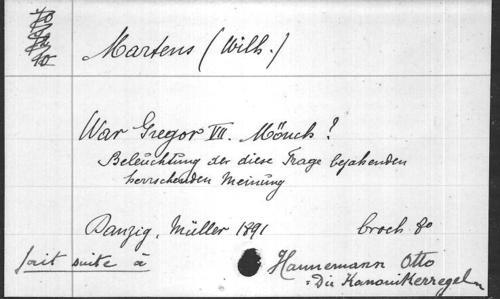 Martens (Wilh.)
War Gregor VII. Mönch?
Beleuchtung der diese Frage bejahenden
herrschenden Meinung
Danzig, Müller 1891 broch 8o
fait suite à Hannemann Otto
: Die Kanonikerregeln